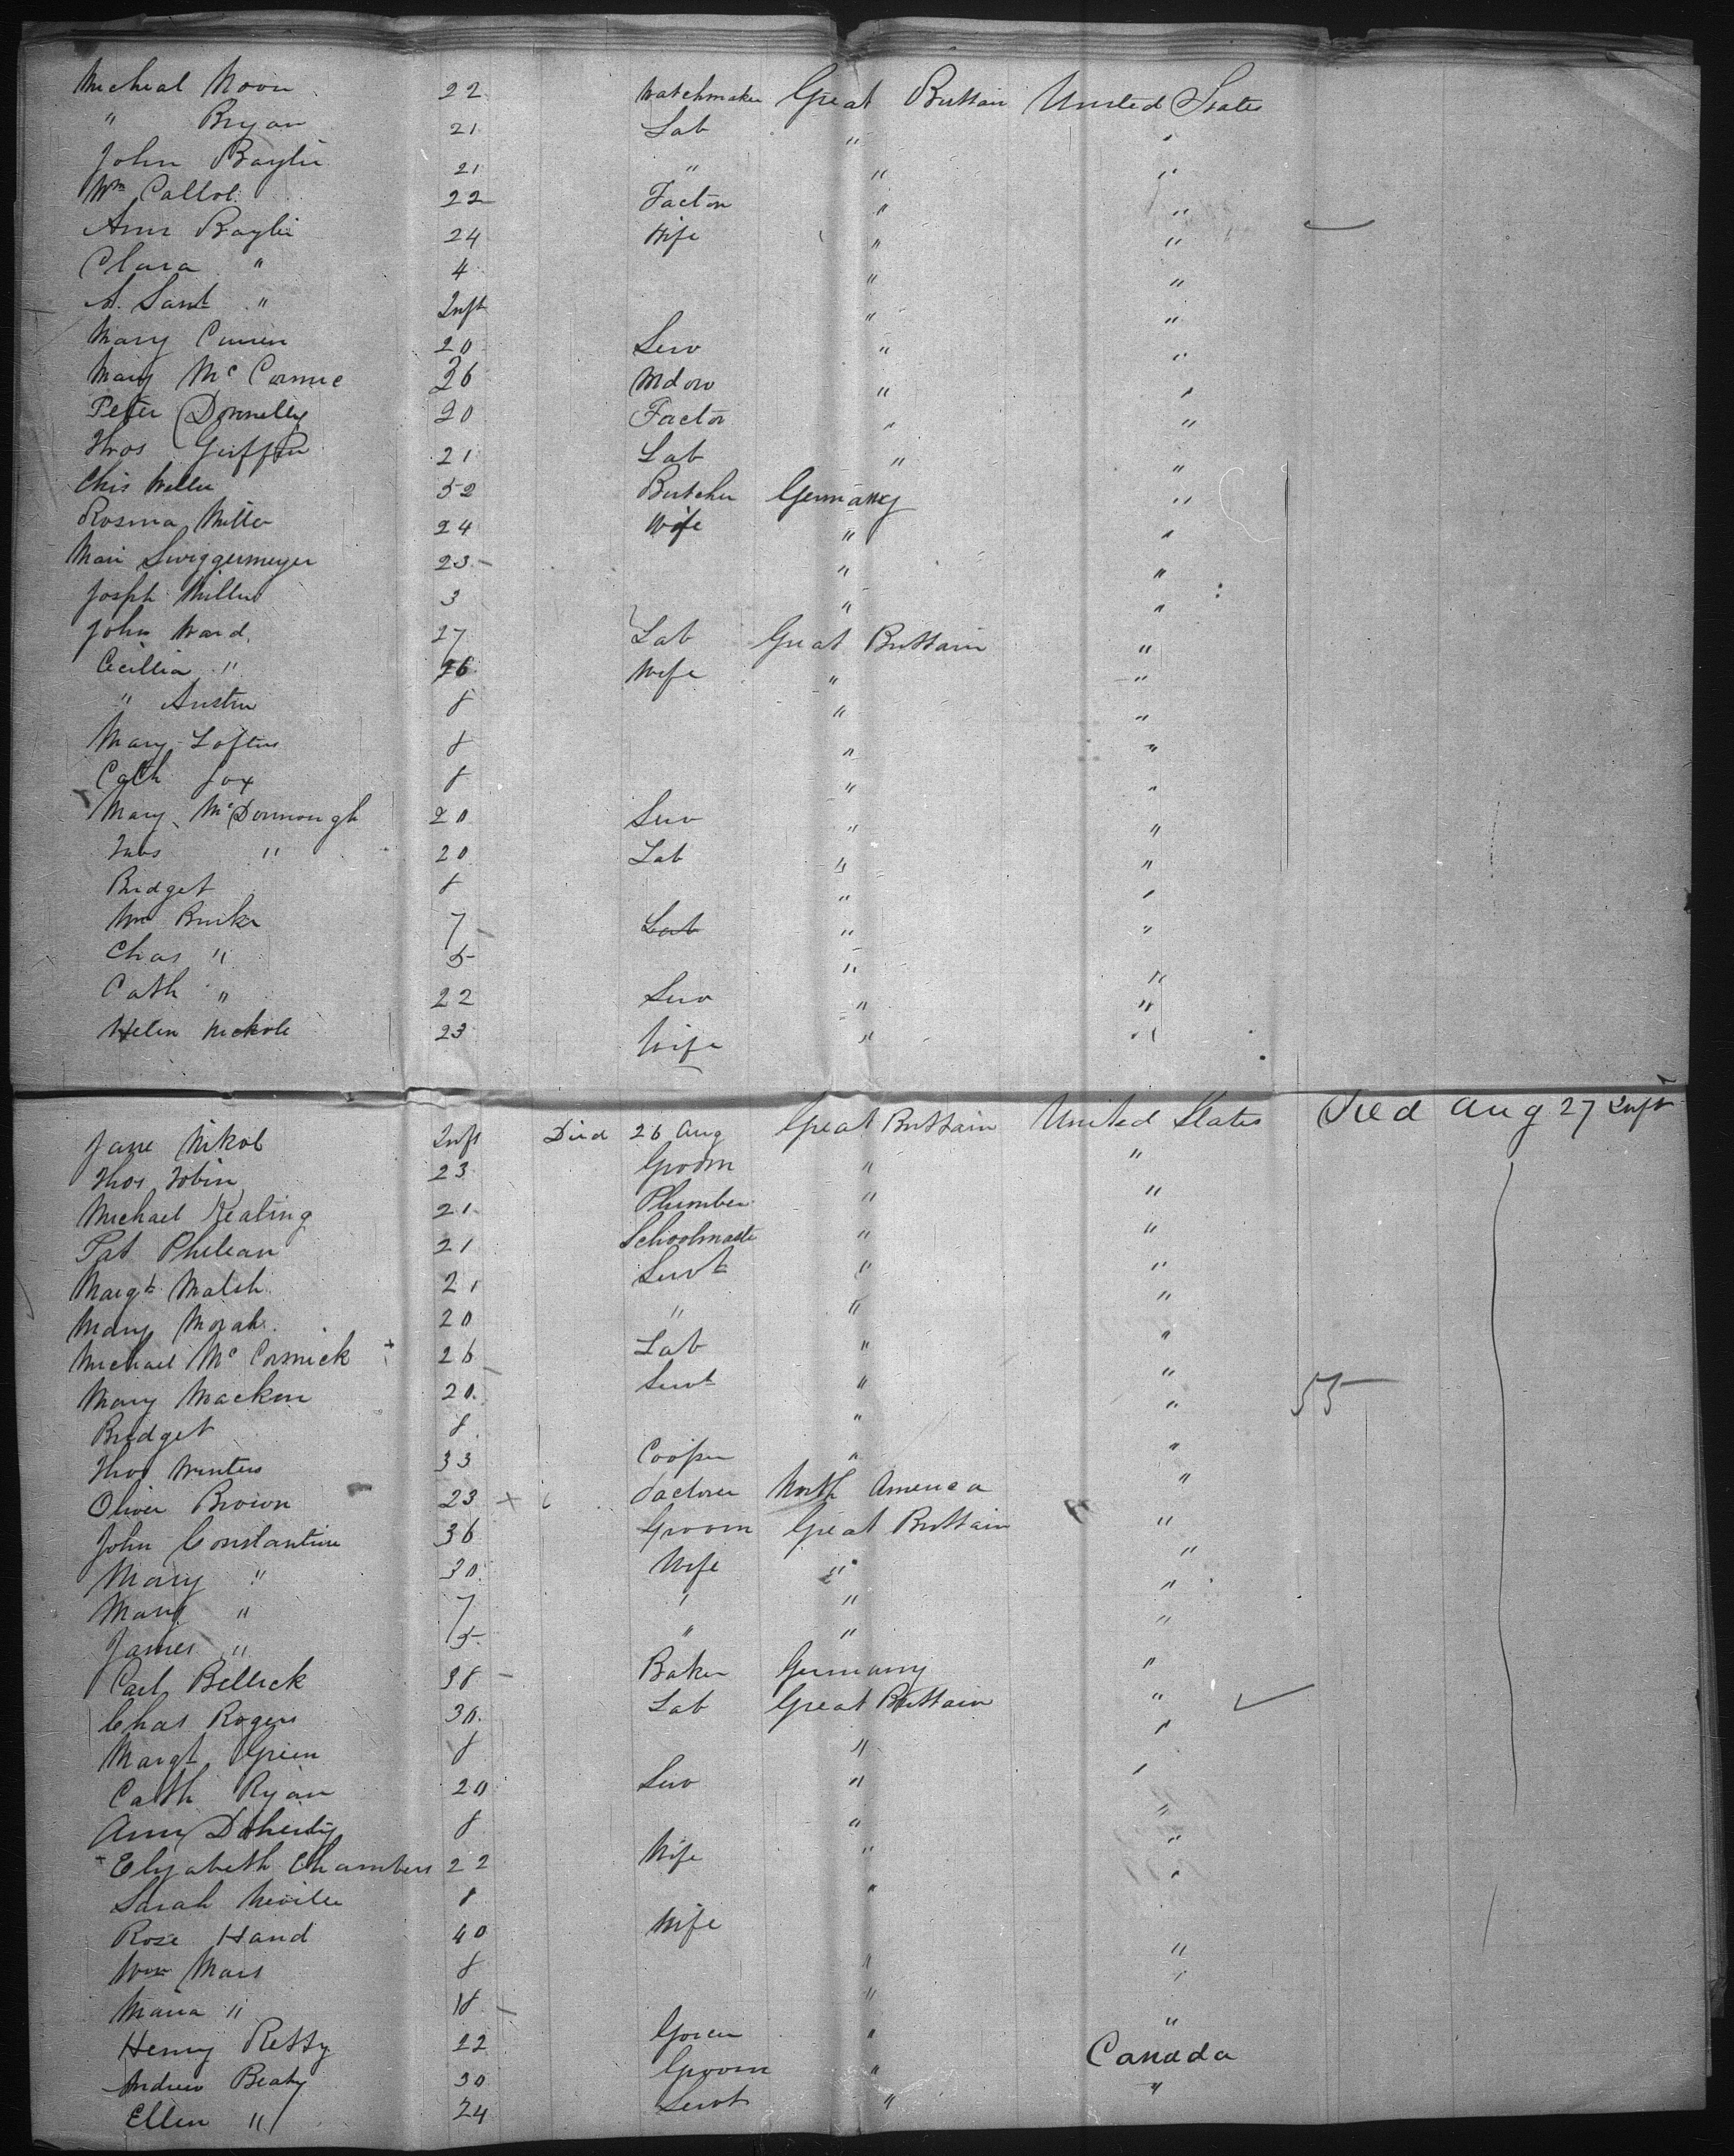 Micheal Moon 22 Watchmaker Great Brittain United States
" Bryan 21 Lab " "
John Baylie 21 " " "
Wm Callol 22 Factor " "
Ann Baylie 24 Wife " "
Clara " 4 " "
A. Sant " Inft " "
Mary Curren 20 Serv " "
Mary Mc Cormic 26 Wdow " "
Peter Donnelly 20 Factor " "
Thos Griffin 21 Lab " "
Chis Weller 52 Butcher Germany "
Rosina Miller 24 Wife " "
Mari Swiggermeyer 23 " "
Josph Miller 3 " "
John Ward 27 Lab Great Brittain "
Cecillia " 26 Wife " "
" Austin 8 " "
Mary Loftus 8 " "
Cath Fox 8 " "
Mary McDonnough 20 Serv " "
" 20 Lab " "
Bridget 8 " "
Wm Burke 7 Lab " "
Chas " 5 " "
Cath " 22 Serv " "
Helen Nickole 23 Wife " "
Jane Nikol Inft Died 26 Aug Great Brittain United States Died Aug 27 Inft
Thos Tobin 23 Groom " "
Michael Keating 21 Plumber " "
Pat Phelean 21 Schoolmaste " "
Margt Walsh 21 Servt " "
Mary Morah 20 " " "
Michael Mc Cormick + 26 Lab " "
Mary Macken 20 Servt " " 55
Bridget 8 " "
Thos Winters 33 Cooper " "
Oliver Brown 23 x Factorer North America "
John Constantine 36 Groom Great Brittain "
Mary " 30 Wife " "
Mary " 7 " " "
James " 5 " " "
Carl Bellick 38 Baker Germany "
Chas Rogers 30 Lab Great Brittain " ✓
Margt Green 8 " "
Cath Ryan 20 Serv " "
Ann Doherty 8 " "
+ Elizabeth Chambers 22 Wife " "
Sarah Neville 8 " "
Rose Hand 40 Wife
Wm Mars 8 " "
Maria " 18 " "
Henry Retty 22 " "
Canada
Andrew Beaty 30 Groom " "
Ellen " 24 Servt "